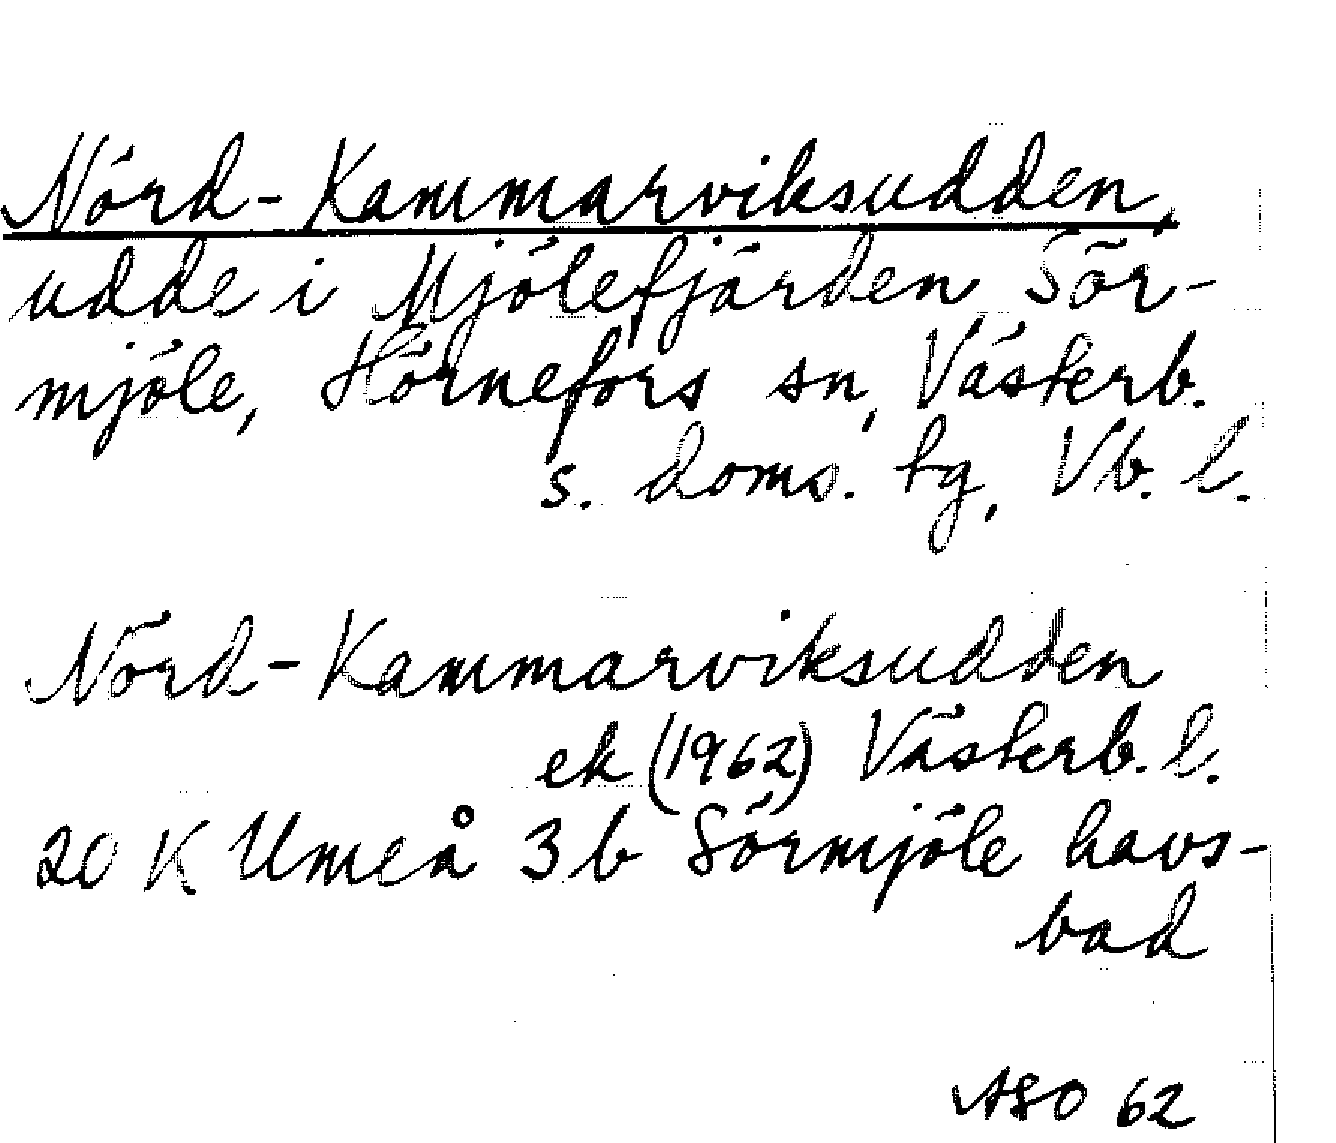 Nörd-Kammarviksudden,
udde i Mjölefjärden Sör-
mjöle, Hörnefors sn, Västerb.
s. doms. tg, Vb. l.
Nörd-Kammarviksudden
ek (1962) Västerb. l.
20 K Umeå 3b Sörmjöle havs-
bad
ASO 62